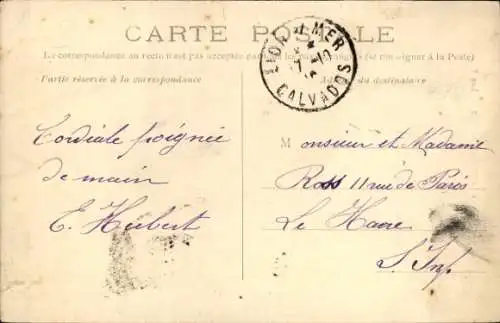 CARTE POSTALE
La correspondance au recto n'est pas acceptée par tous les pays étrangers (se renseigner à la Poste)
Partie réservée à la correspondance
Adresse du destinataire
LION S/ MER
CALVADOS
Cordiale poignée
de main
E. Hubert
Monsieur et Madame
Ross 11 rue de Paris
Le Havre
S. Inf